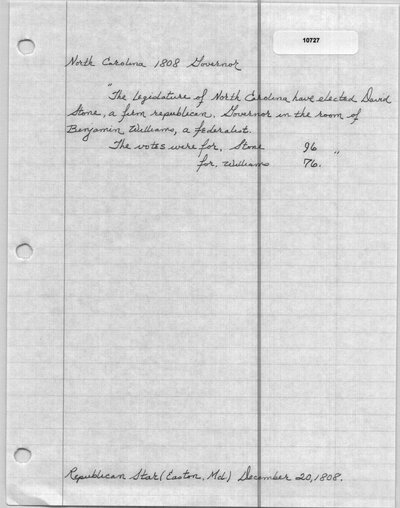 10727
North Carolina 1808 Governor
"The Legislature of North Carolina have elected David
Stone, a firm republican, Governor in the room of
Benjamin Williams, a federalist.
The votes were for, Stone 96
for, Williams 76."
Republican Star (Easton, Md) December 20, 1808.